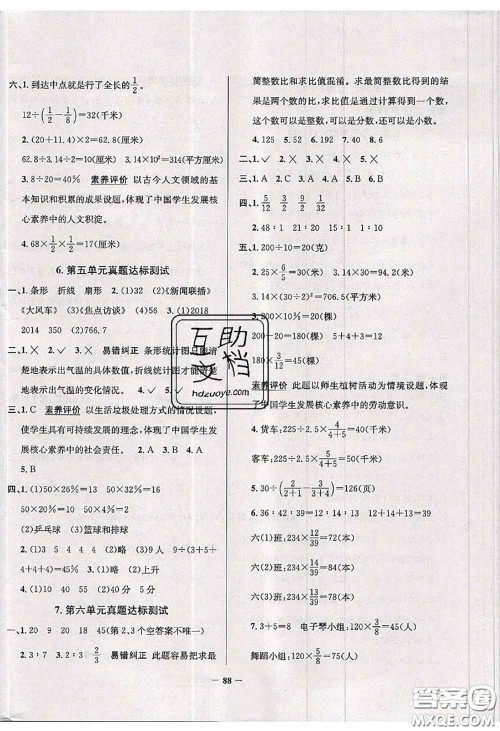 六、1. 到达中点就是行了全长的1/2。
12÷(1/2-1/8)=32(千米)
2.(20+11.4)×2=62.8(厘米)
62.8÷3.14÷2=10(厘米)
3.14×10²=314(平方厘米)
3. 8÷20=40% 素养评价 以古今人文领域的基
本知识和积累的成果设题,体现了中国学生发展核
心素养中的人文积淀。
4. 68×1/2×1/2=17(页)
6. 第五单元真题达标测试
一、1. 条形 折线 扇形 2.(1)32 (2)《新闻联播》
《大风车》 (3)《焦点访谈》 3.(1)2018
2014 350 (2)766.7
二、1. × 2. ✓ 3. × 易错纠正 条形统计图
楚地表示出气温的具体数值,折线统计图才能清
楚地表示出气温的变化情况。 4. ✓ 5. ✓
三、1. C 素养评价 以生活垃圾处理方式的情况设题,
使学生具有可持续发展的理念,体现了中国学生发
展核心素养中的社会责任。 2. A 3. B 4. A
5. B
四、1.(1)50×26%=13 50×32%=16
50×22%=11 50×20%=10
(2)乒乓球 (3)篮球和排球
2.(1)3 5 4 4 4 (2)略 (3)9÷(3+5+
4+4+4)=45% 易错纠正 9
3.(1)略 (2)10 (3)20 (4)40分 5分
7. 第六单元真题达标测试
一、1. 20 9 20 18 45(第2、3个空答案不唯一)
2. 3∶7 3. 3∶2 2/3 易错纠正 此题容易把求最
简整数比和求比值混淆。求最简整数比得到的结
果是两个数的比,求比值是通过计算得到一个数,
这个数可以是整数,可以是分数,还可以是小数。
4. 125 5. 52 6. 192 7. 128
二、1. ✓ 2. ✓ 3. × 4. × 5. ×
三、1. C 2. A 3. A 4. B 5. B
四、1. 5/12 3/2 9/2 1/16
2. 48∶41 2∶1 15∶4 1∶10
五、1. 200÷10=20(克)
2. 25×6/5=30(km)
3. 200÷20=10(棵) 5+4+3=12
200-20=180(棵) 5+4+3=12
180×5/12=75(棵)
素养评价 此题以师生植树活动为情境设题,体现
了中国学生发展核心素养中的劳动意识。
4. 货车:225×4/(4+5)=100(千米)
客车:225×5/(4+5)=125(千米)
5. 30÷(2/(2+1)-3/(3+4))=126(页)
六、1. 12+13+14=39
六(1)班:234×12/39=72(本)
六(2)班:234×13/39=78(本)
六(3)班:234×14/39=84(本)
2. 3+5=8 电子琴小组:120×3/8=45(人)
舞蹈小组:120×5/8=75(人)
— 88 —
互助文档
hdzuoye.com
答案圈
MXQE.COM